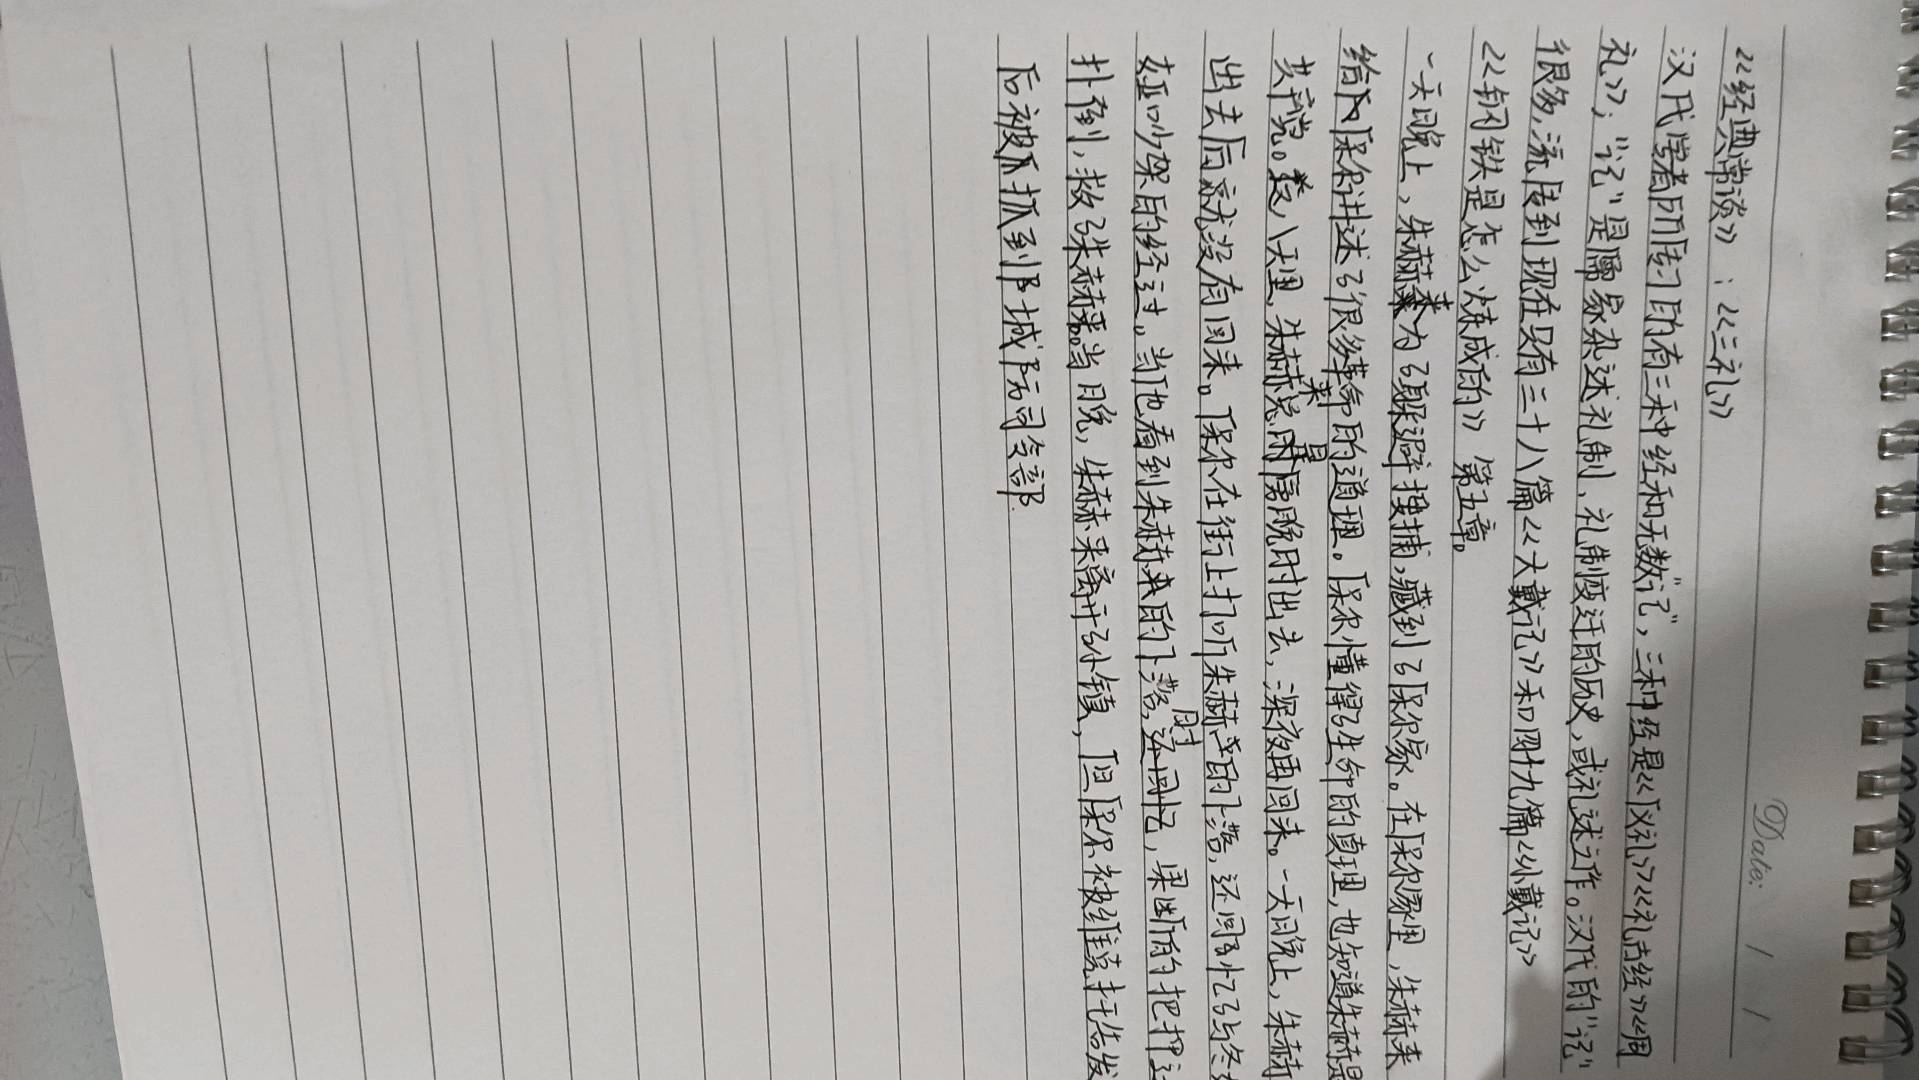 Date: / /
《经典常谈》:《三礼》
汉代学者所传习的有三种经和无数“记”,三种经是《仪礼》《礼古经》《周
礼》;“记”是儒家杂述礼制、礼制变迁的历史,或礼述之作。汉代的“记”
很多,流传到现在只有三十八篇《大戴记》和四十九篇《小戴记》
《钢铁是怎么炼成的》第五章。
一天晚上,朱赫来为了躲避搜捕,藏到了保尔家。在保尔家里,朱赫来
给保尔讲述了很多革命的道理。保尔懂得了生命的真理,也知道朱赫来是
共产党。八天里,朱赫来总是傍晚时出去,深夜再回来。一天晚上,朱赫
出去后就没有回来。保尔在街上打听朱赫来的下落,还同时回忆了与冬
娅吵架的经过。当他看到朱赫来的下落时,果断的把押
扑倒,救了朱赫来。当晚,朱赫来离开了小镇,但保尔被维克托告发
后被抓到了城防司令部